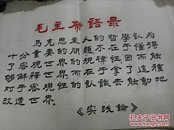 毛主席語录
马克思主义的哲学认为
十分重要的問题不在于懂得
了客观世界的规律性因而能
够解释世界而在于拿了這種
对于客观性的认識去能动地
改造世界
《实踐論》